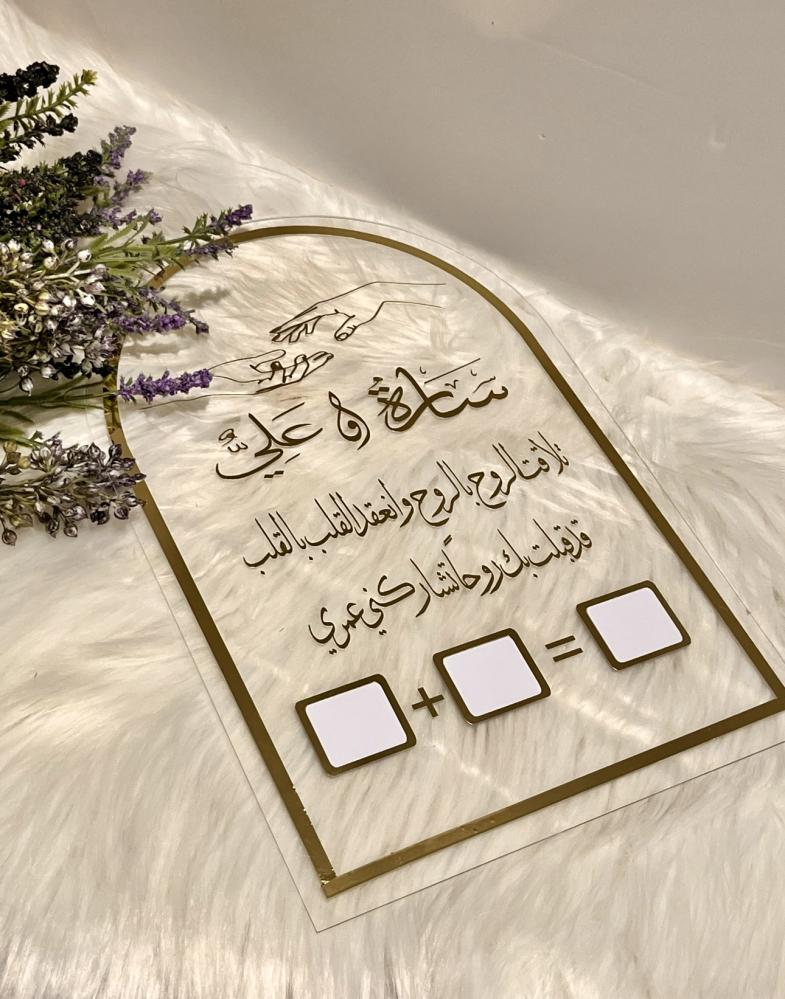 سَارَة و عَلِيُّ
تلاقت الروح بالروح وانعقد القلب بالقلب
قد قبلت بك روحاً تشاركني عمري
+ =